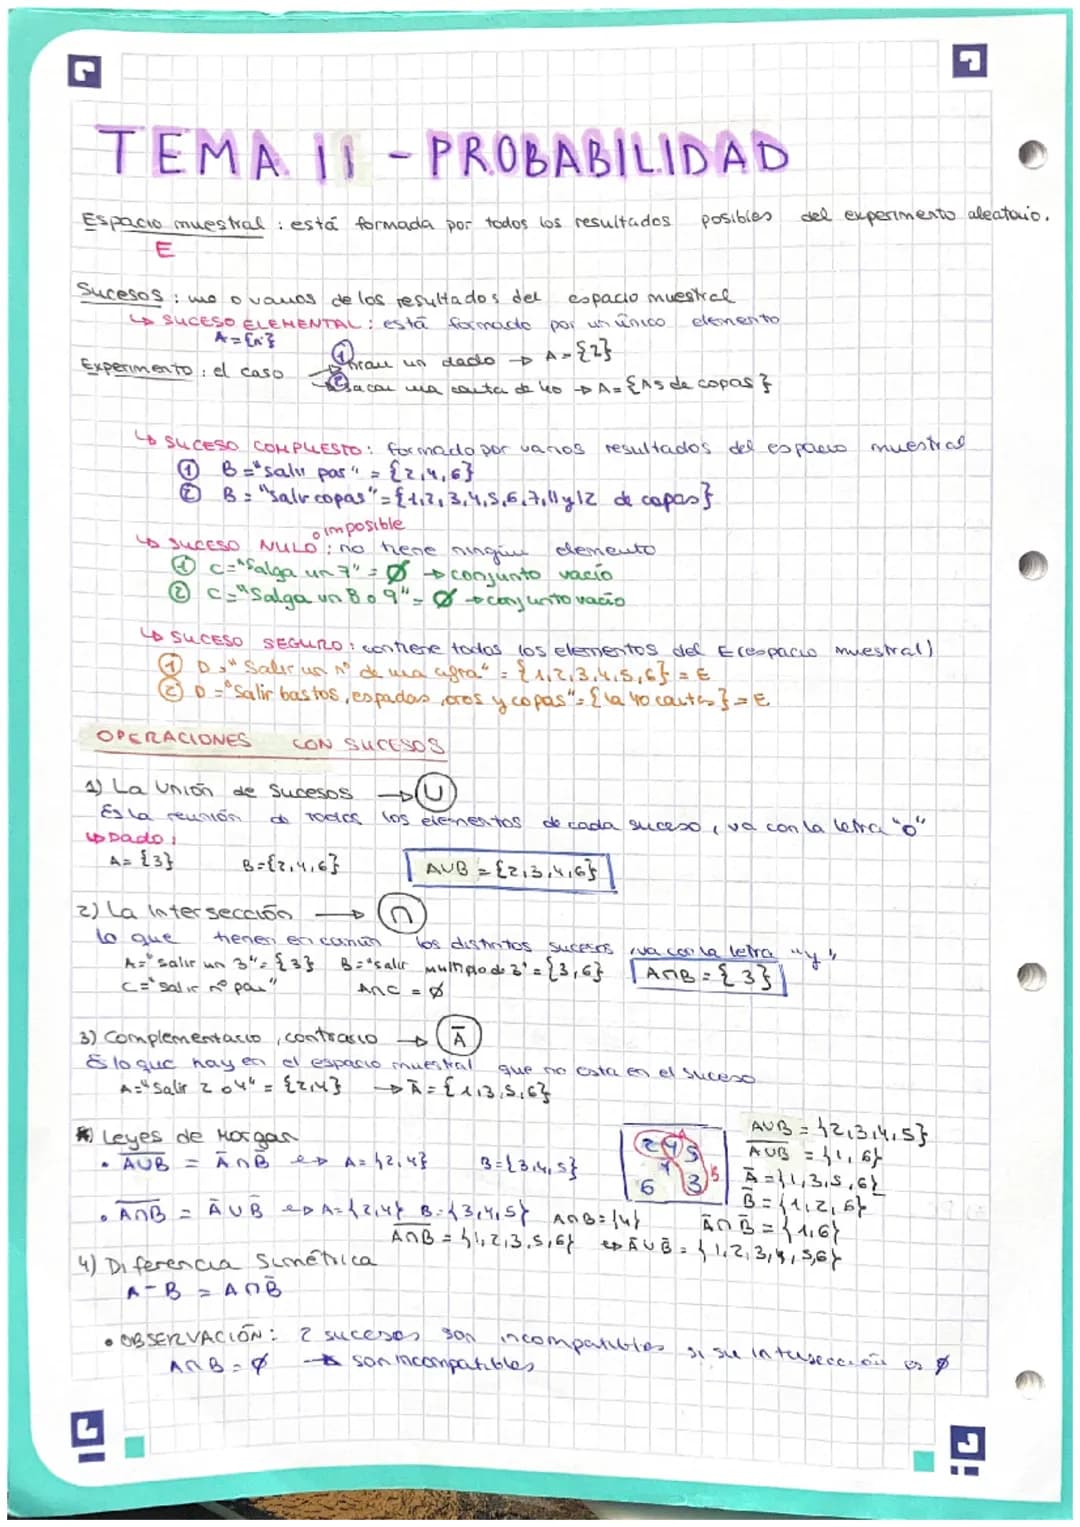 TEMA 11 - PROBABILIDAD
Espacio muestral : está formada por todos los resultados posibles del experimento aleatorio.
E
Sucesos : uno o varios de los resultados del espacio muestral
↳ SUCESO ELEMENTAL : está formado por un único elemento
A={n}
Experimento : el caso
① Tirar un dado → A={2}
② Sacar una carta de 40 → A={As de copas}
↳ SUCESO COMPUESTO: formado por varios resultados del espacio muestral
① B="salir par" = {2,4,6}
② B="salir copas"={1,2,3,4,5,6,7,11 y 12 de copas}
o imposible
↳ SUCESO NULO : no tiene ningún elemento
① C="Salga un 7" = Ø → conjunto vacío
② C="Salga un 8 o 9" = Ø → conjunto vacío
↳ SUCESO SEGURO : contiene todos los elementos del E (espacio muestral)
① D="Salir un nº de una cifra" = {1,2,3,4,5,6} = E
② D="Salir bastos, espadas, oros y copas" = {la 40 cartas} = E
OPERACIONES CON SUCESOS
1) La Unión de Sucesos → U
Es la reunión de todos los elementos de cada suceso, va con la letra "o"
↳ Dado :
A={3} B={2,4,6} AUB = {2,3,4,6}
2) La Intersección → ∩
lo que tienen en común los distintos sucesos, va con la letra "y"
A="salir un 3"={3} B="salir multiplo de 3"={3,6} A∩B={3}
C="salir nº par" A∩C = Ø
3) Complementario, contrario → Ā
Es lo que hay en el espacio muestral que no esta en el suceso
A="Salir 2 o 4" = {2,4} → Ā={1,3,5,6}
Leyes de Morgan
• A̅U̅B̅ = Ā∩B̄ ↳ A={2,4} B={3,4,5}
• A̅∩̅B̅ = ĀUB̄ ↳ A={2,4} B={3,4,5} A∩B={4}
A̅∩̅B̅ = {1,2,3,5,6} ↳ ĀUB̄ = {1,2,3,4,5,6}
AUB = {2,3,4,5}
A̅U̅B̅ = {1,6}
Ā={1,3,5,6}
B̄={1,2,6}
Ā∩B̄ = {1,6}
2 4 5
1
6 3 B
4) Diferencia Simétrica
A-B = A∩B̄
• OBSERVACIÓN: 2 sucesos son incompatibles si su intersección es Ø
A∩B = Ø → son incompatibles